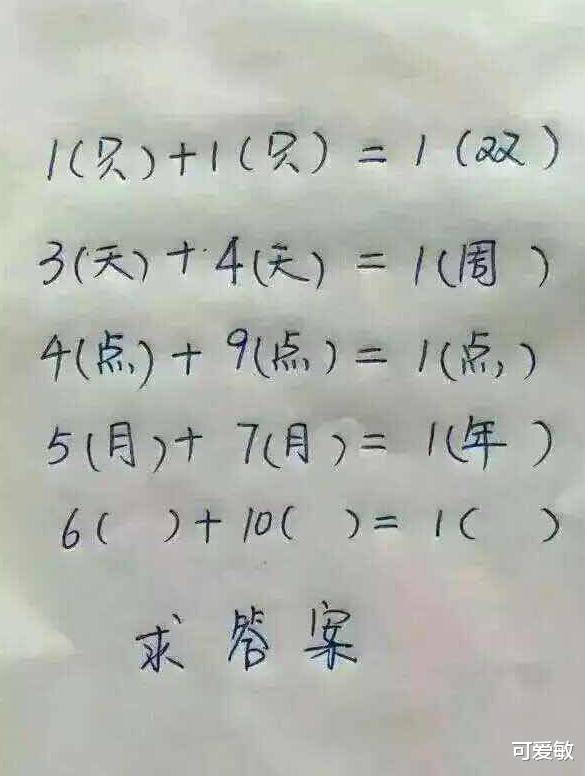 1(只)+1(只)=1(双)
3(天)+4(天)=1(周)
4(点)+9(点)=1(点)
5(月)+7(月)=1(年)
6( )+10( )=1( )
求答案
可爱敏